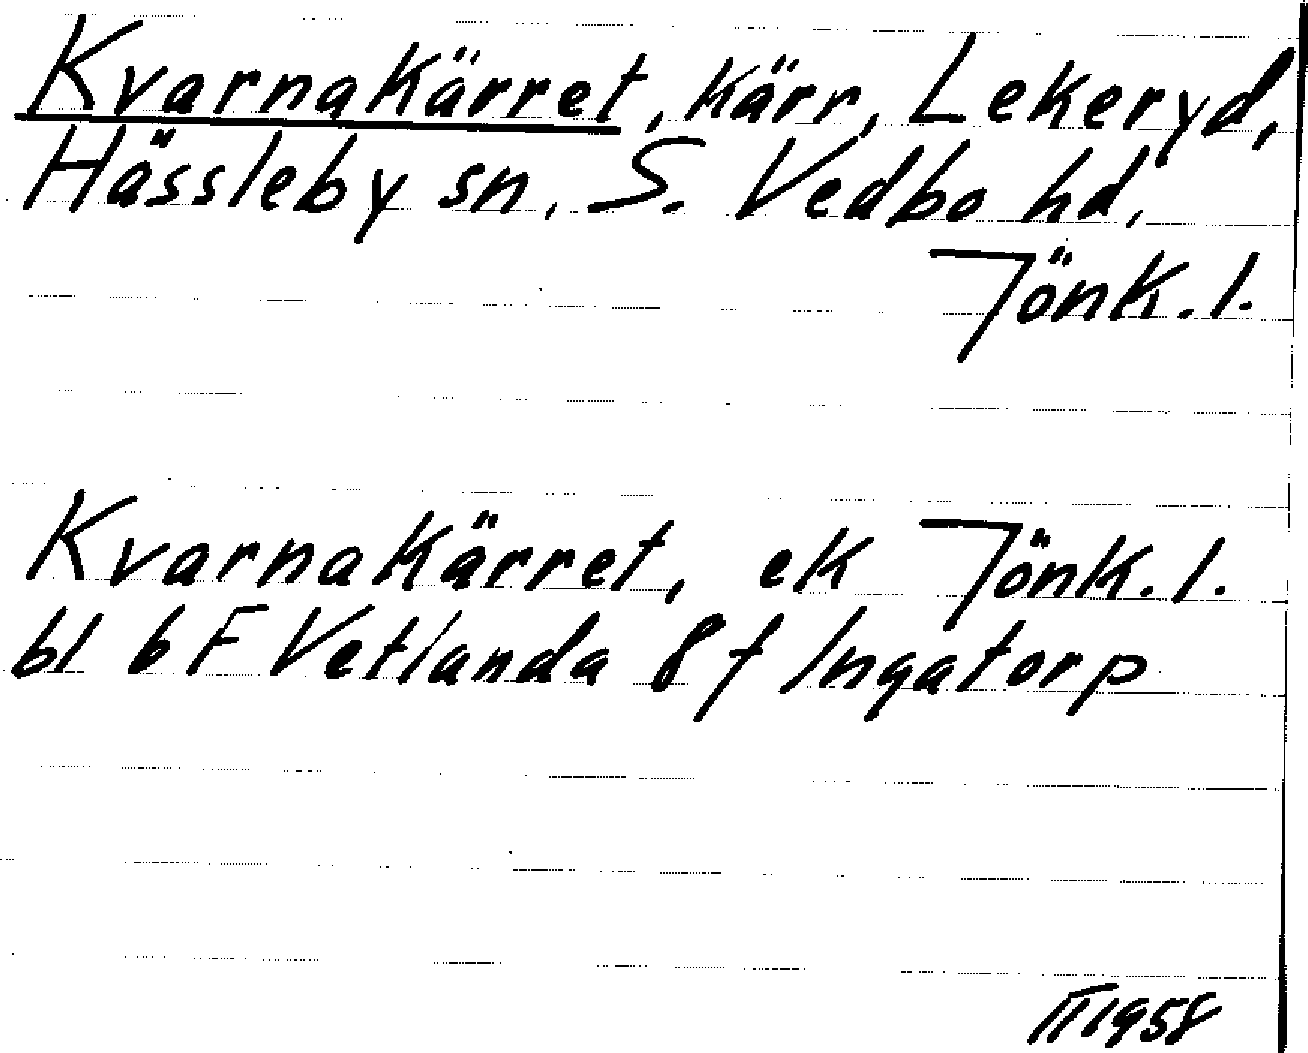 Kvarnakärret, kärr, Lekeryd,
Hässleby sn, S. Vedbo hd,
Jönk. l.
Kvarnakärret, ek Jönk. l.
bl 6 F Vetlanda 8 f Ingatorp
1958